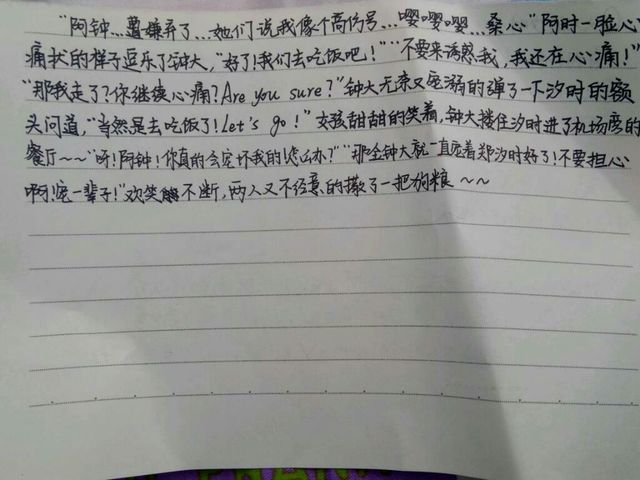 “阿钟…曹嫌弃了…她们说我像个高仿号…嘤嘤嘤…桑心”阿时一脸心
痛状的样子逗乐了钟大，“好了！我们去吃饭吧！”“不要来诱惑我，我还在心痛！”
“那我走了？你继续心痛？Are you sure？”钟大无奈又宠溺的弹了一下汐时的额
头问道，“当然是去吃饭了！Let's go！”女孩甜甜的笑着，钟大搂住汐时进了机场旁的
餐厅～～“呀！阿钟！你真的会宠坏我的！怎么办？”“那金钟大就一直宠着郑汐时好了！不要担心
啊！宠一辈子！”欢笑不断，两人又不经意的撒了一把狗粮～～